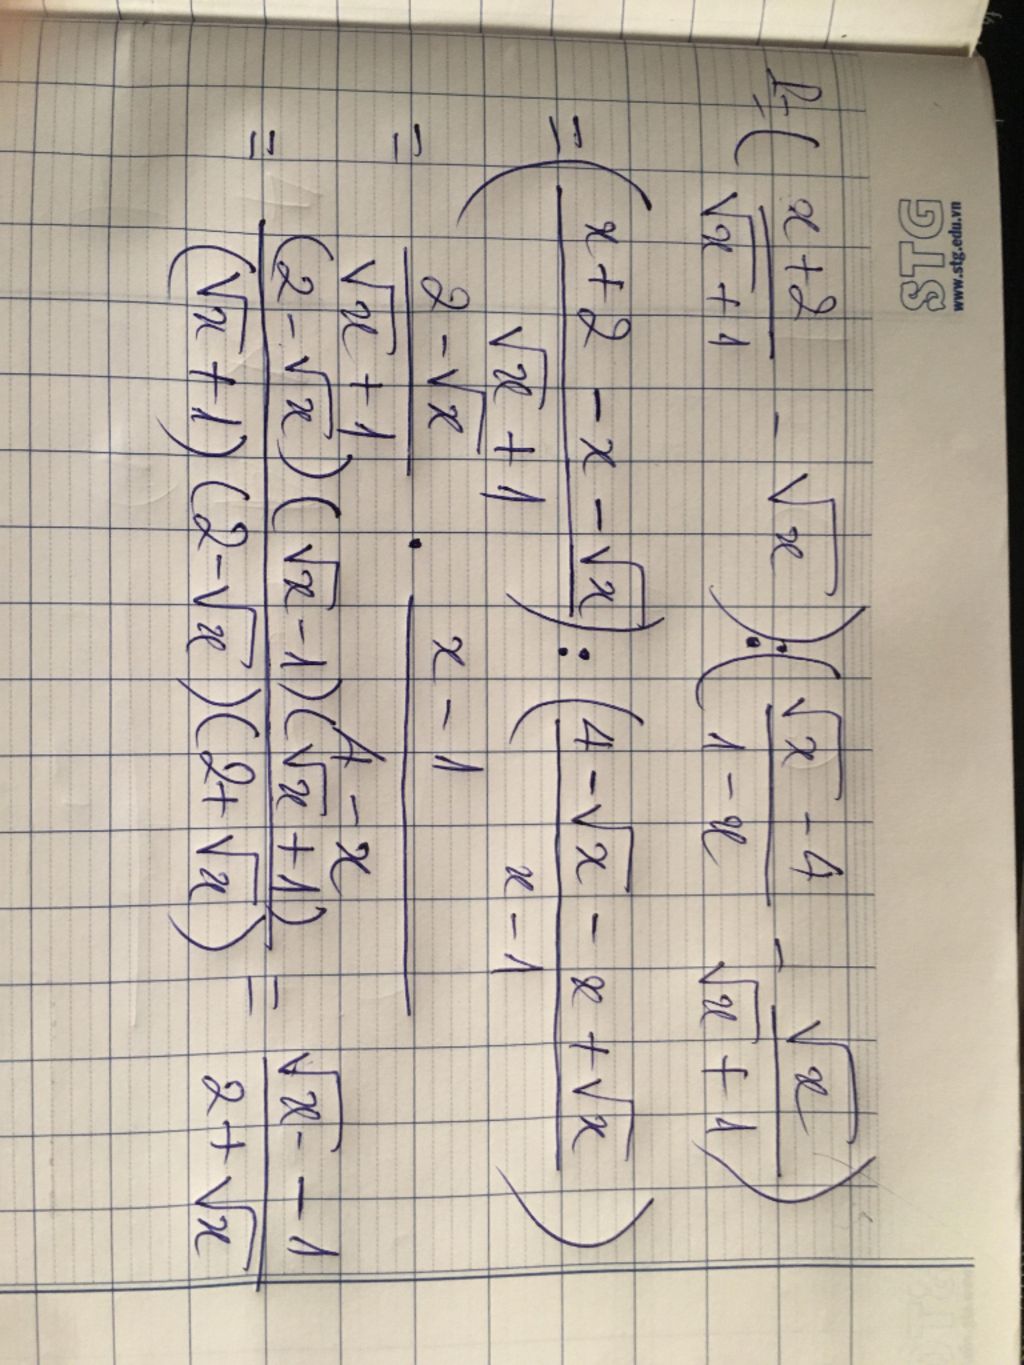 STG
www.stg.edu.vn
P = ( x+2 / √x + 1 - √x ) : ( √x - 4 / 1 - x - √x / √x + 1 )
= ( x + 2 - x - √x / √x + 1 ) : ( 4 - √x - x + √x / x - 1 )
= 2 - √x / √x + 1 . x - 1 / 4 - x
= (2 - √x)(√x - 1)(√x + 1) / (√x + 1)(2 - √x)(2 + √x) = √x - 1 / 2 + √x